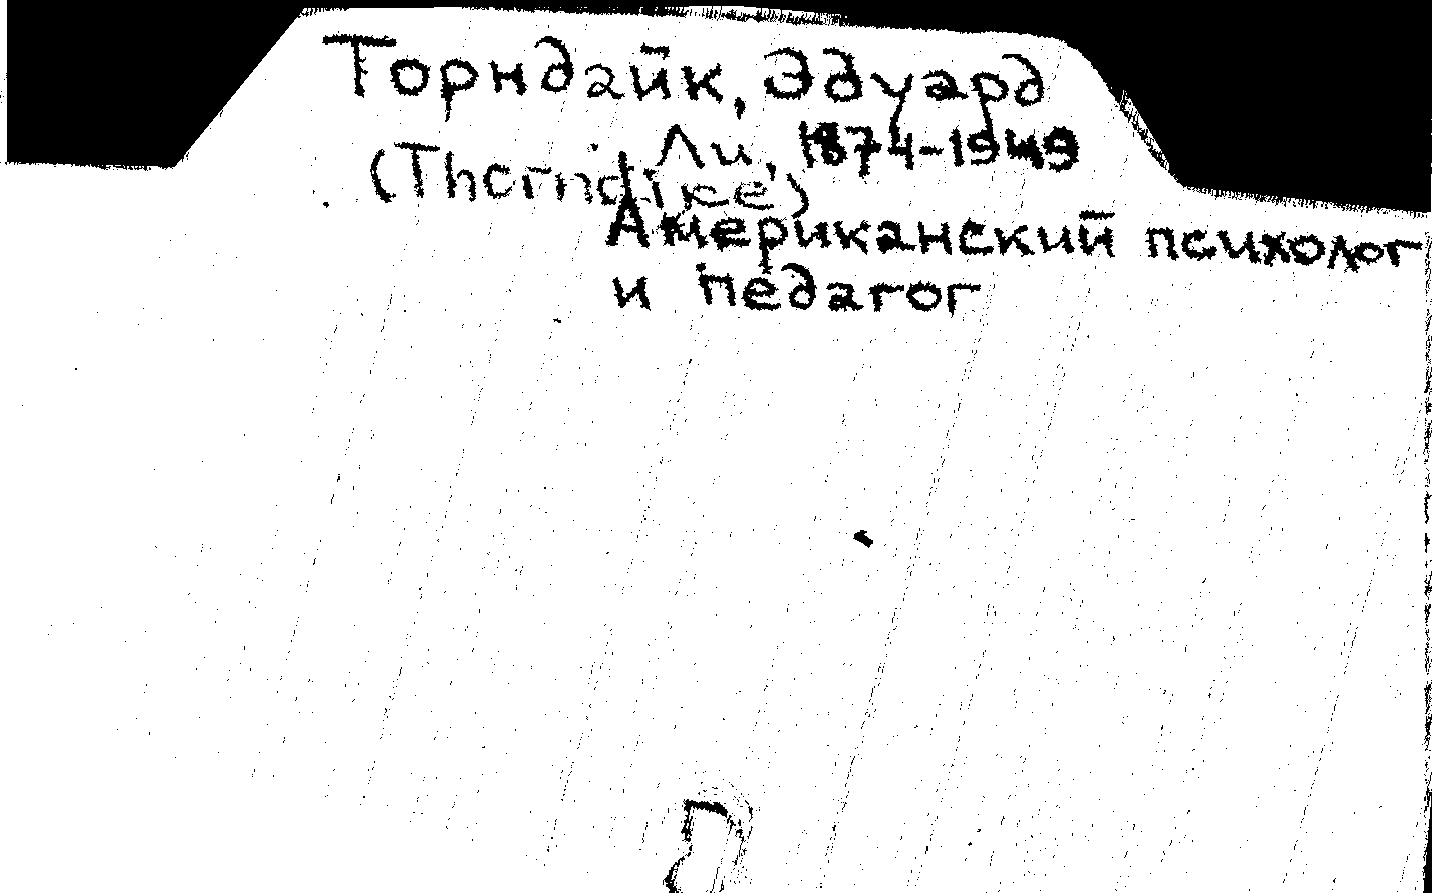 Торндайк, Эдуард
Ли, 1874-1949
(Thorndike)
Американский психолог
и педагог